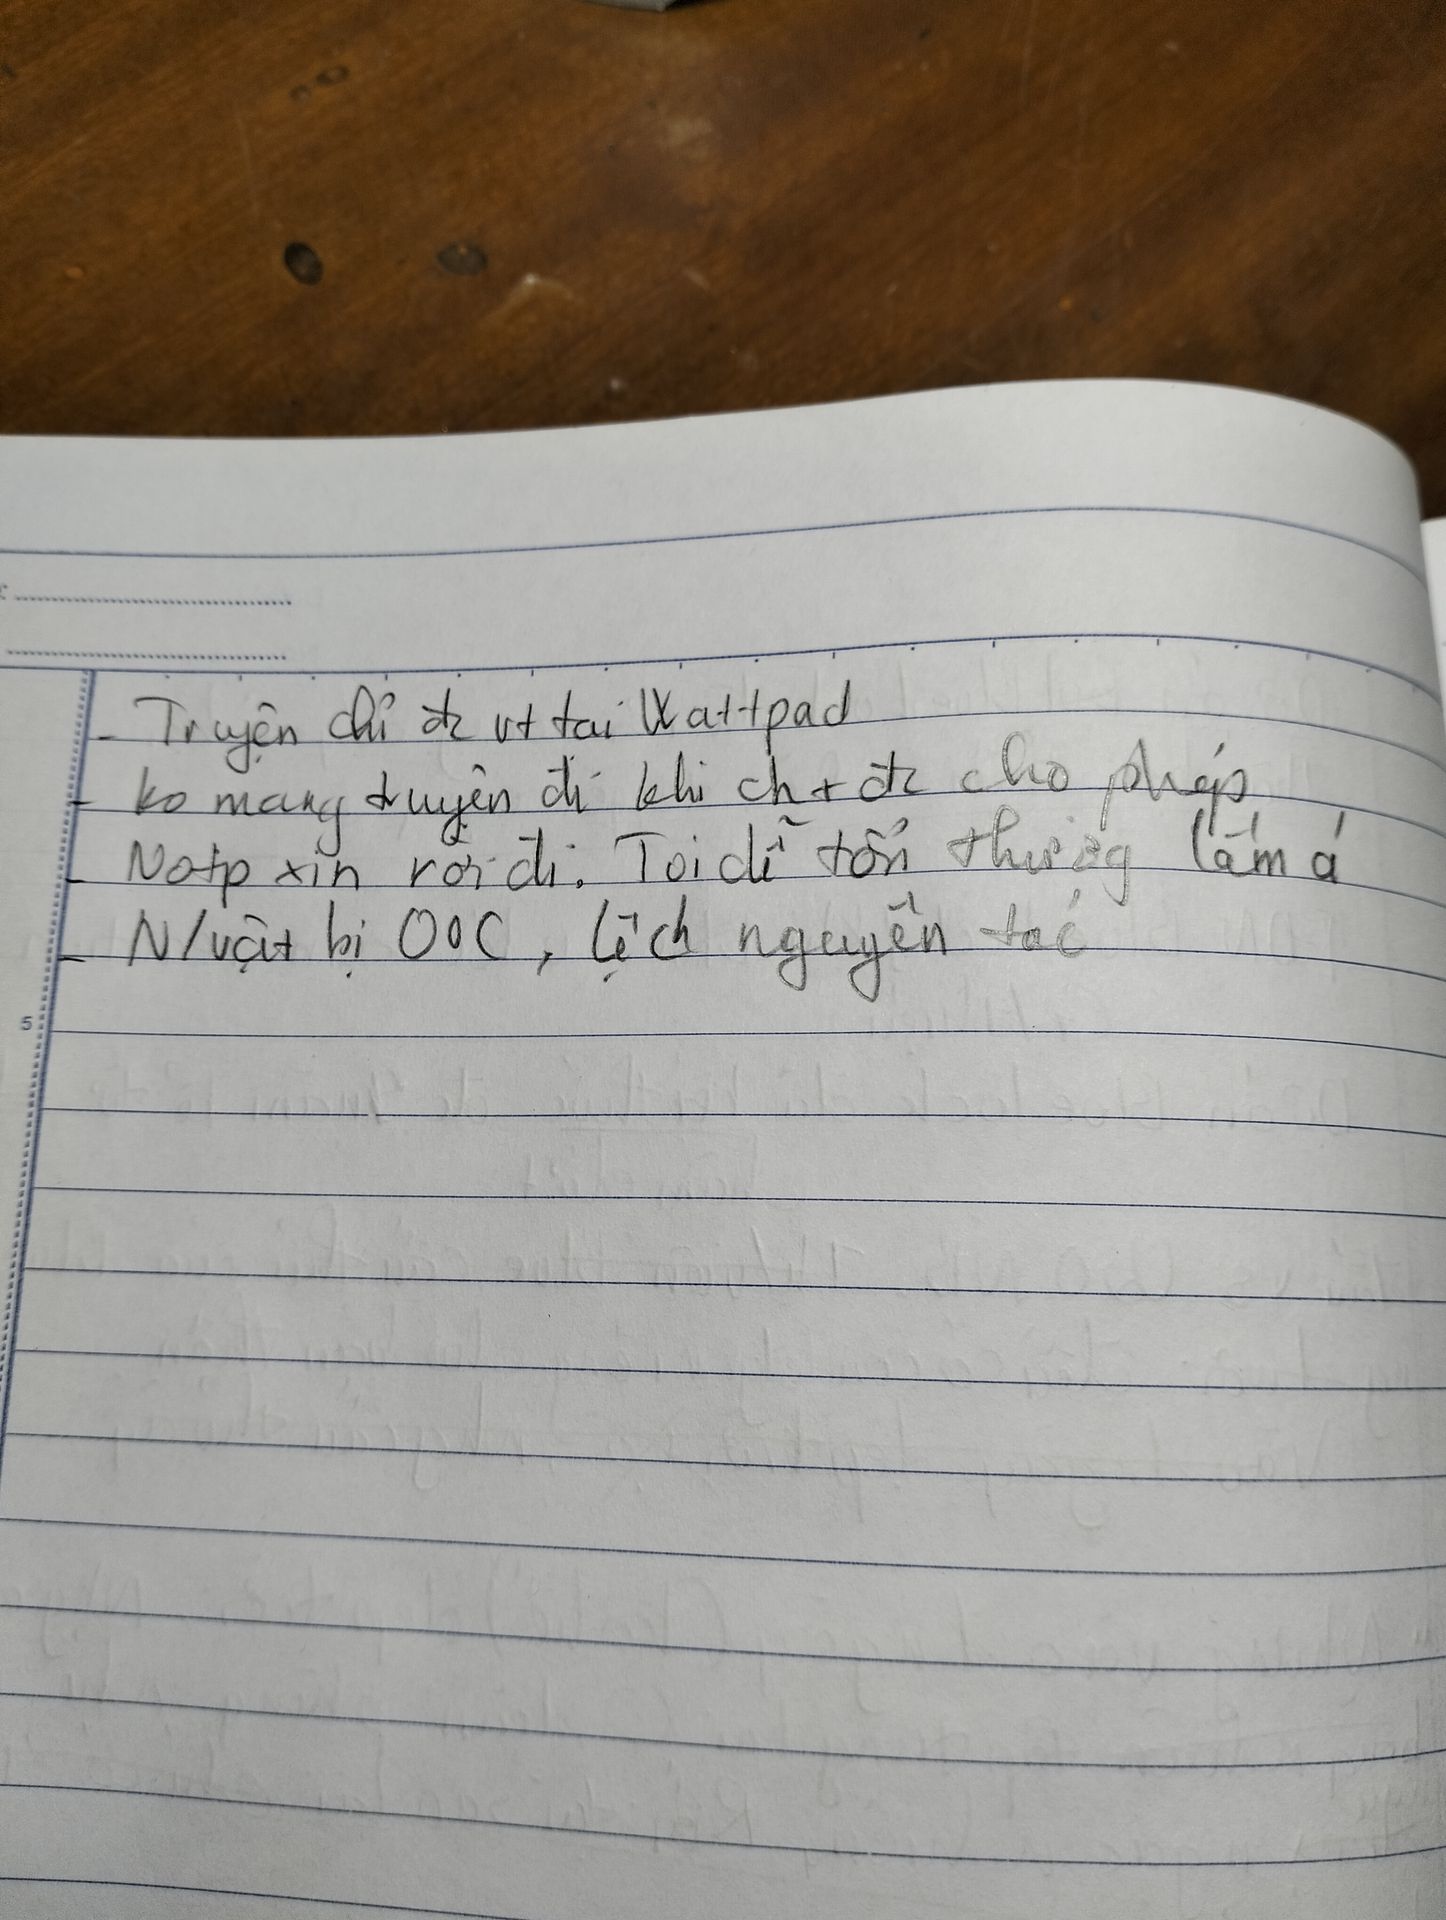 - Truyện chỉ đc vt tại Wattpad
- ko mang truyện đi khi ch+ đc cho phép
- Notp xin rời đi. Tôi dễ tổn thương lắm á
- N/vật bị OOC, lệch nguyên tác
5